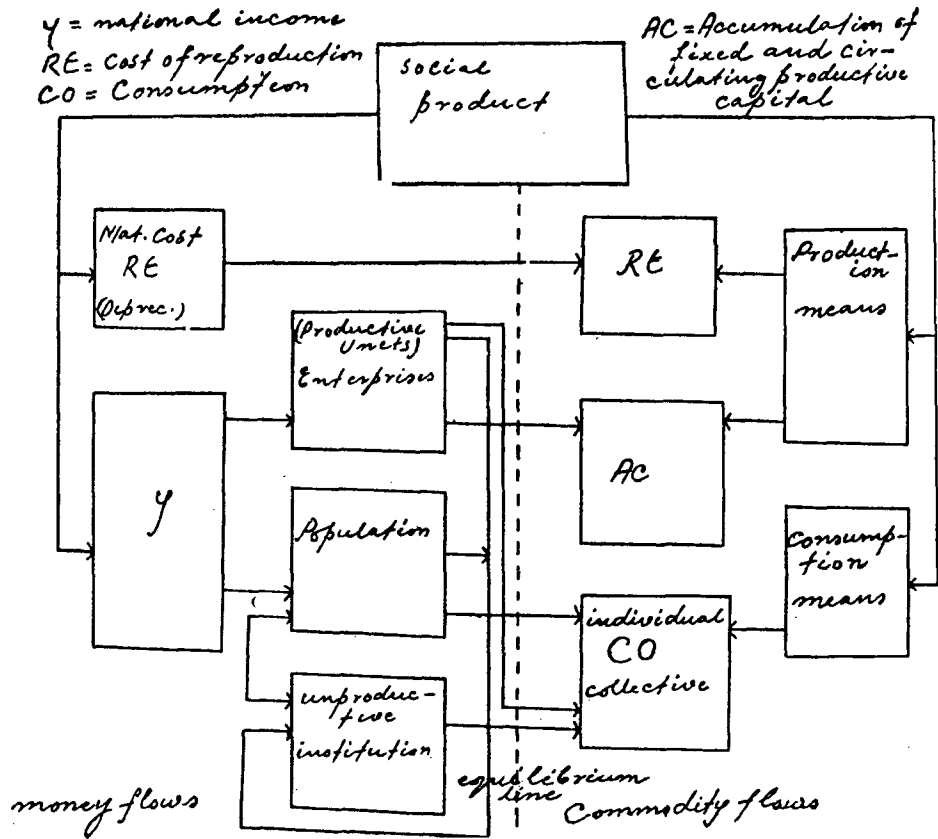 Y = national income
RE = Cost of reproduction
CO = Consumption
AC = Accumulation of
fixed and cir-
culating productive
capital
Social
product
Mat. Cost
RE
(Deprec.)
RE
Product-
ion
means
(Productive
Units)
Enterprises
Y
AC
Population
Consump-
tion
means
individual
CO
collective
unproduc-
tive
institution
money flows
equilibrium
line
Commodity flows